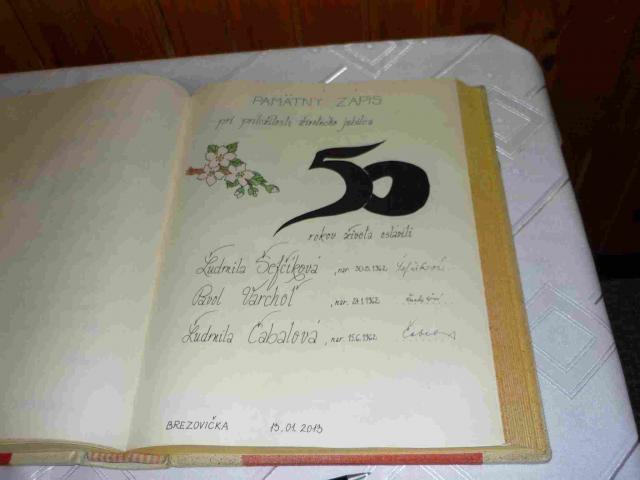 PAMÄTNÝ ZÁPIS
pri príležitosti životného jubilea
50
rokov života oslávili
Ľudmila Šefčíková, nar. 30.5.1962
Pavol Varchoľ, nar. 29.1.1962
Ľudmila Čabalová, nar. 15.6.1962
BREZOVIČKA 13.01.2013